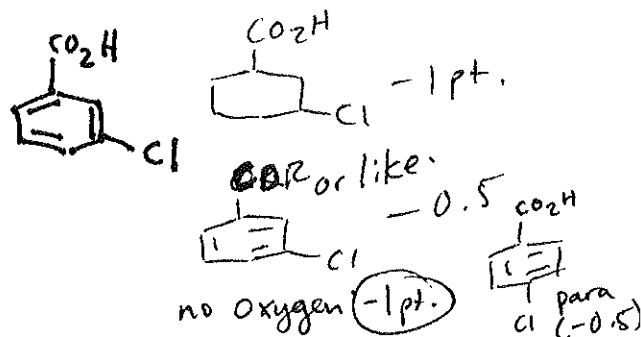 CO2H
Cl
CO2H
Cl
-1pt.
or like.
-0.5
Cl
no oxygen -1pt.
CO2H
Cl
para
(-0.5)